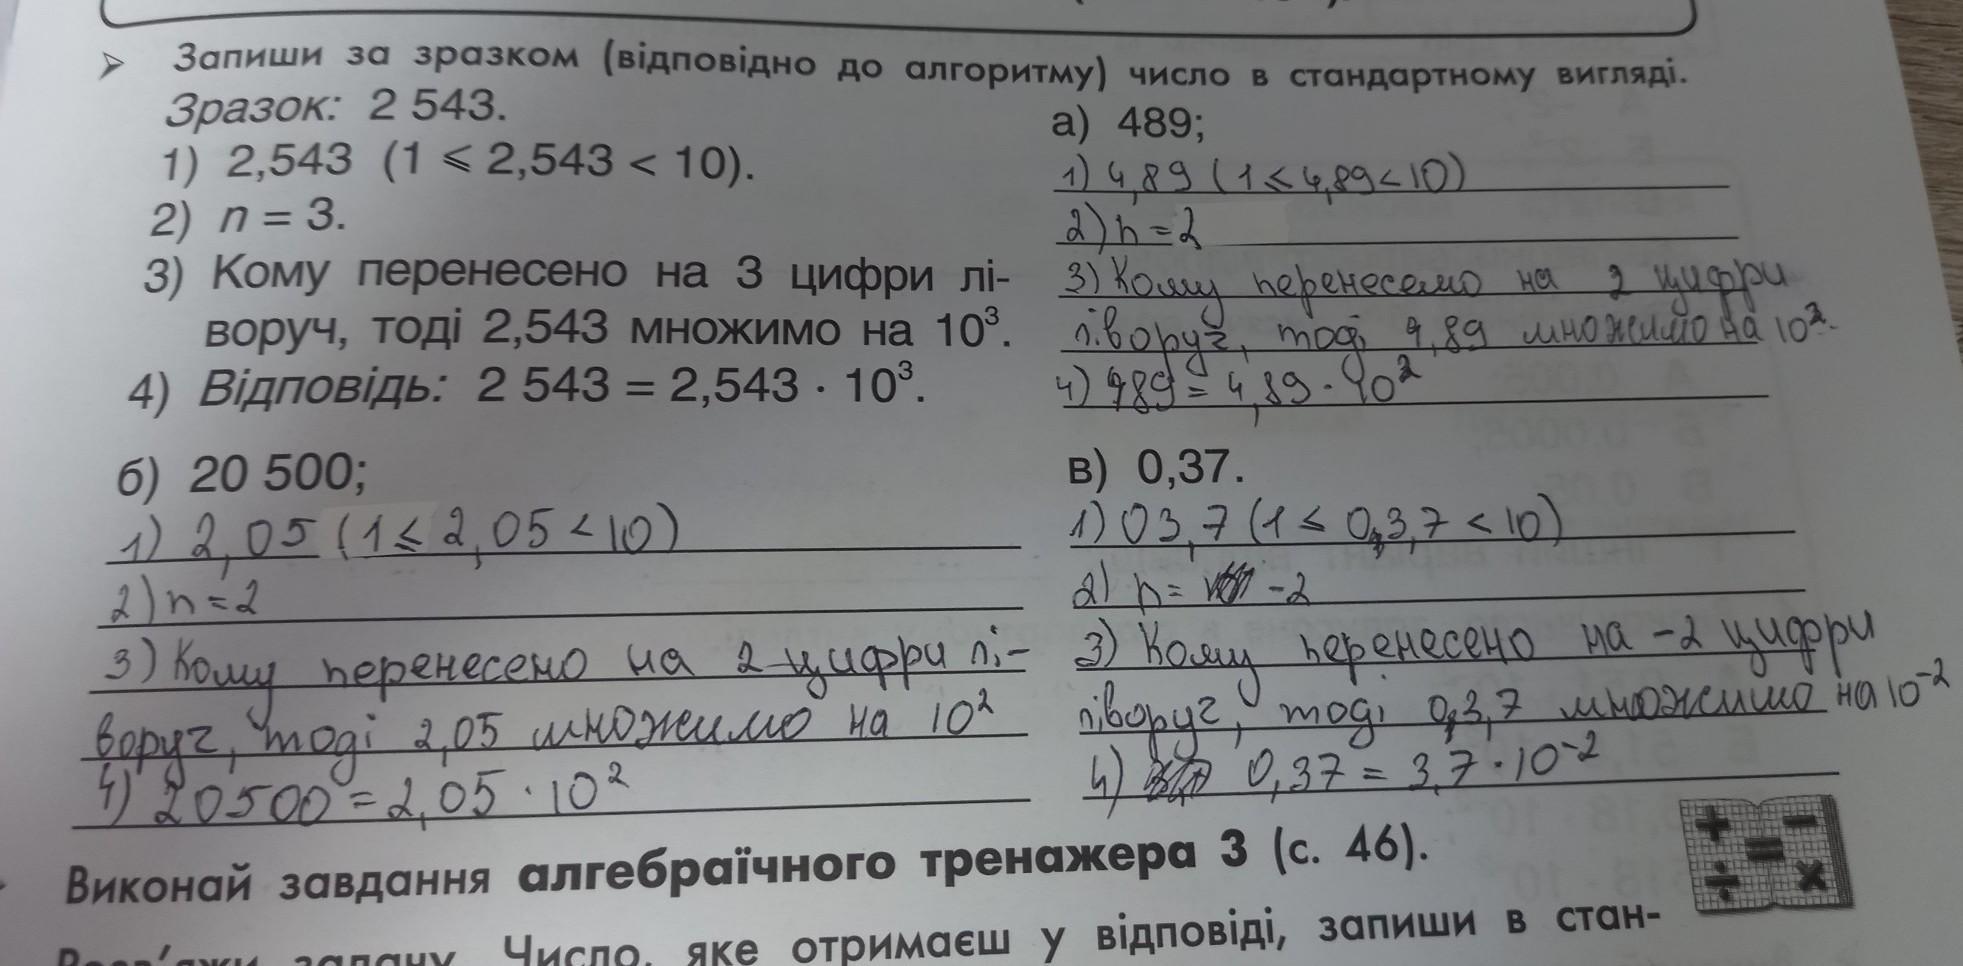 Запиши за зразком (відповідно до алгоритму) число в стандартному вигляді.
Зразок: 2 543.
1) 2,543 (1 ⩽ 2,543 < 10).
2) n = 3.
3) Кому перенесено на 3 цифри лі-
воруч, тоді 2,543 множимо на 10³.
4) Відповідь: 2 543 = 2,543 · 10³.
а) 489;
1) 4,89 (1 ⩽ 4,89 < 10)
2) n = 2
3) Кому перенесемо на 2 цифри
ліворуч, тоді 4,89 множимо на 10².
4) 489 = 4,89 · 10²
б) 20 500;
1) 2,05 (1 ⩽ 2,05 < 10)
2) n = 2
3) Кому перенесено на 2 цифри лі-
воруч, тоді 2,05 множимо на 10²
4) 20500 = 2,05 · 10²
в) 0,37.
1) 03,7 (1 ≤ 0,3,7 < 10)
2) n = -2
3) Кому перенесено на -2 цифри
ліворуч, тоді 0,3,7 множимо на 10⁻²
4) 0,37 = 3,7 · 10⁻²
Виконай завдання алгебраїчного тренажера 3 (с. 46).
задачу. Число, яке отримаєш у відповіді, запиши в стан-